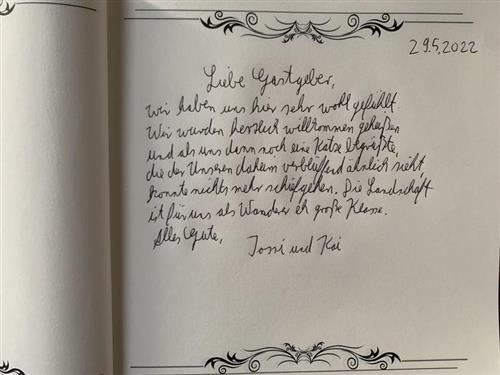 29.5.2022
Liebe Gastgeber,
wir haben uns hier sehr wohl gefühlt.
Wir wurden herzlich willkommen geheißen
und als uns dann noch eine Katze begrüßte,
die der Unseren daheim verblüffend ähnlich sieht,
konnte nichts mehr schiefgehen. Die Landschaft
ist für uns als Wanderer eh große Klasse.
Alles Gute,
Jossi und Kai